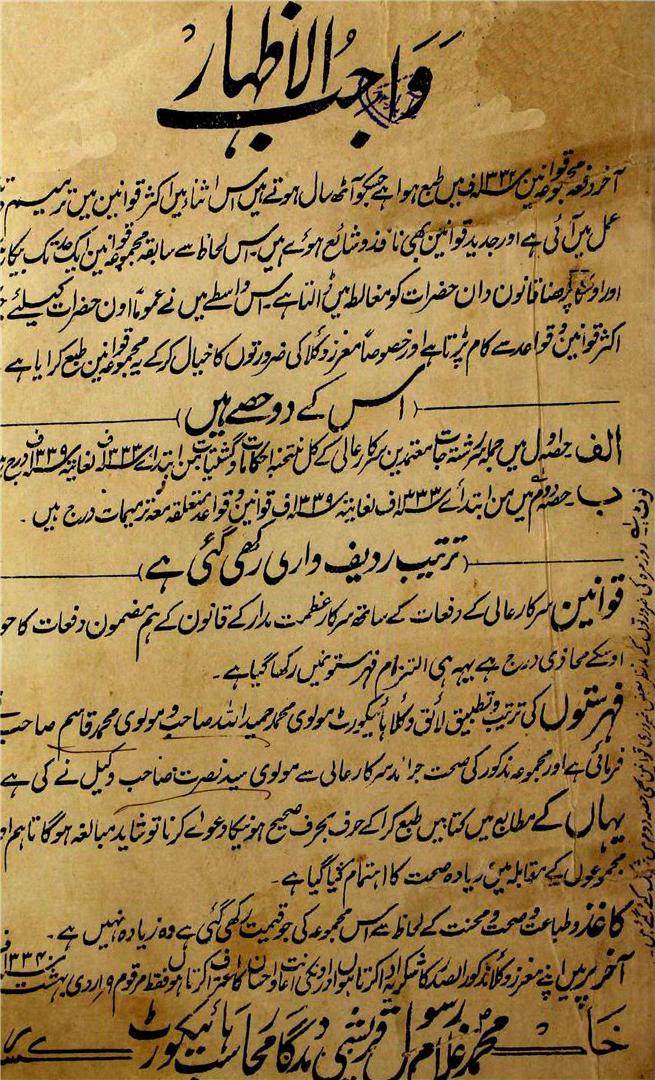 واجب الاظہار
آخر دفعہ مجموعہ قوانین ۱۳۳۲ف میں طبع ہوا ہے جسکو آٹھ سال ہوتے ہیں اس اثناء میں اکثر قوانین میں ترمیم
عمل میں آئی ہے اور جدید قوانین بھی نافذ و شائع ہوے ہیں۔ اس لحاظ سے سابقہ مجموعہ قوانین ایک حد تک بیکار
اور اونکا پڑھنا قانون دان حضرات کو مغالطہ میں ڈالتا ہے۔ اس واسطے میں نے عموماً اون حضرات کیلئے
اکثر قوانین و قواعد سے کام پڑتا ہے اور خصوصاً معزز وکلا کی ضرورتوں کا خیال کر کے یہ مجموعہ قوانین طبع کرایا ہے
(اس کے دو حصے ہیں)
الف حصہ اول میں جملہ سررشتہ جات معتمدین سرکار عالی کے کل منتخبہ احکامات و گشتیات من ابتدائے ۱۳۳۳ف لغایتہ ۱۳۳۹ف درج
ب حصہ دوم میں من ابتدائے ۱۳۳۳ف لغایتہ ۱۳۳۹ف قوانین و قواعد متعلقہ معہ ترمیمات درج ہیں۔
(ترتیب ردیف واری رکھی گئی ہے)
قوانین سرکار عالی کے دفعات کے ساتھ سرکار عظمت مدار کے قانون کے ہم مضمون دفعات کا
اوسکے محاذی درج ہے یہہ ہی التزام فہرستونمیں رکھا گیا ہے۔
فہرستوں کی ترتیب و تطبیق لائق وکلا ہائیکورٹ مولوی محمد حمید اللہ صاحب و مولوی محمد قاسم صاحب
فرمائی ہے اور مجموعہ مذکور کی صحت جرائد سرکار عالی سے مولوی سید نصرت صاحب وکیل نے کی ہے
یہاں کے مطابع میں کتابیں طبع کرا کے حرف بحرف صحیح ہونیکا دعوے کرنا تو شاید مبالغہ ہوگا تاہم
مجموعوں کے مقابلہ میں زیادہ صحت کا اہتمام کیا گیا ہے۔
کاغذ و طباعت و صحت و محنت کے لحاظ سے اس مجموعہ کی جو قیمت رکھی گئی ہے وہ زیادہ نہیں ہے۔
آخر پر میں اپنے معزز وکلا مذکور الصدر کا شکریہ ادا کرتا ہوں اور اونکی اعانت و احسان کا اعتراف کرتا ہوں فقط مرقوم ۹ اردی بہشت
محمد غلام رسول قریشی مددگار محاسب ہائیکورٹ
نوٹ